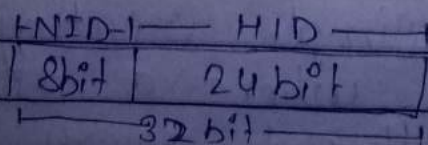 NID HID
8bit 24 bit
32 bit